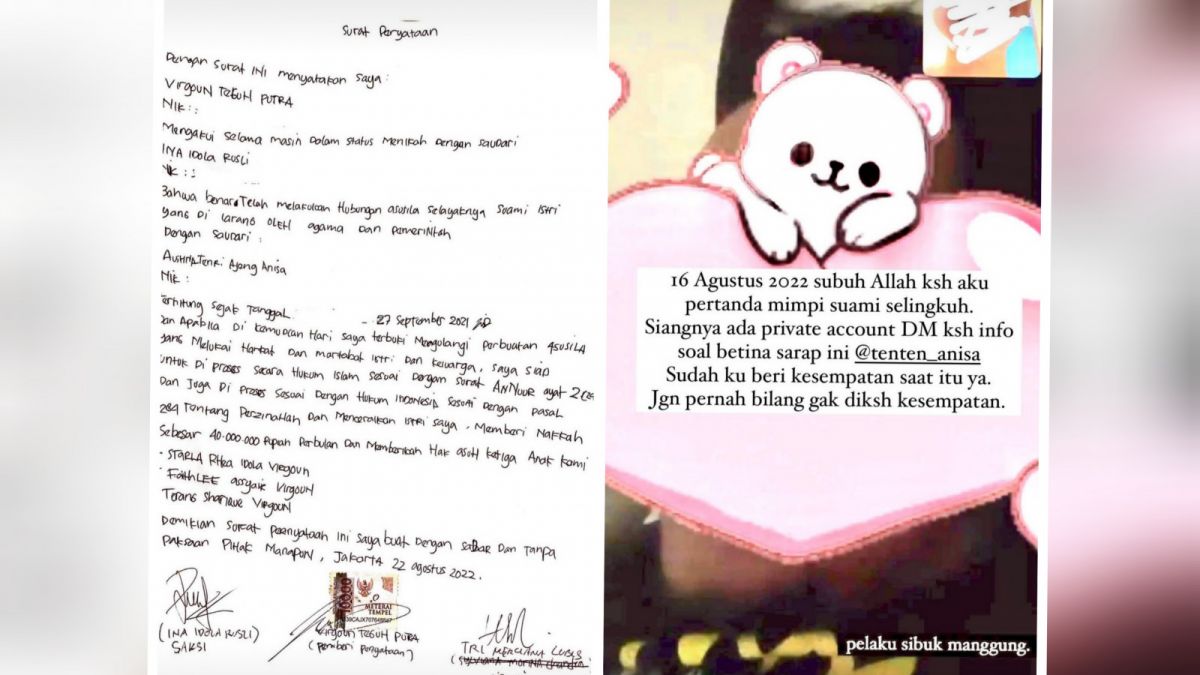 Surat Peryataan
Dengan Surat INI menyatakan saya :
VIRGOUN TEGUH PUTRA
NIK : :
Mengakui Selama masih Dalam Status Menikah Dengan Saudari
INA IDOLA RUSLI
NIK : :
Bahwa benar Telah melakukan Hubungan asusila Selayaknya Suami Istri
yang Di larang oleh agama Dan Pemerintah
Dengan Saudari :
Tenri Ajeng Anisa
NIK :
Terhitung Sejak Tanggal : 27 September 2021
Dan Apabila Di Kemudian Hari saya terbukti Mengulangi Perbuatan ASUSILA
yang Melukai Harkat Dan martabat istri Dan keluarga, saya siap
untuk Di Proses Secara Hukum Islam Sesuai Dengan Surat ANNUUR ayat 2
Dan Juga Di Proses Sesuai Dengan Hukum Indonesia Sesuai Dengan Pasal
284 Tentang Perzinahan Dan Menceraikan Istri saya, Memberi Nafkah
Sebesar 40.000.000 Rupiah Perbulan Dan Memberikan Hak asuh ketiga Anak kami
- STARLA RHea IDola VIRgoun
- Faith LEE assyair Virgoun
Sharique Virgoun
Demikian Surat Pernyataan Ini Saya buat Dengan Sadar Dan Tanpa
Paksaan Pihak Manapun, Jakarta 22 agustus 2022.
10000
METERAI
TEMPEL
(INA IDOLA RUSLI)
SAKSI
VIRGOUN TEGUH PUTRA
(Pemberi Pernyataan)
TRI LUBIS
16 Agustus 2022 subuh Allah ksh aku
pertanda mimpi suami selingkuh.
Siangnya ada private account DM ksh info
soal betina sarap ini @tenten_anisa
Sudah ku beri kesempatan saat itu ya.
Jgn pernah bilang gak diksh kesempatan.
pelaku sibuk manggung.